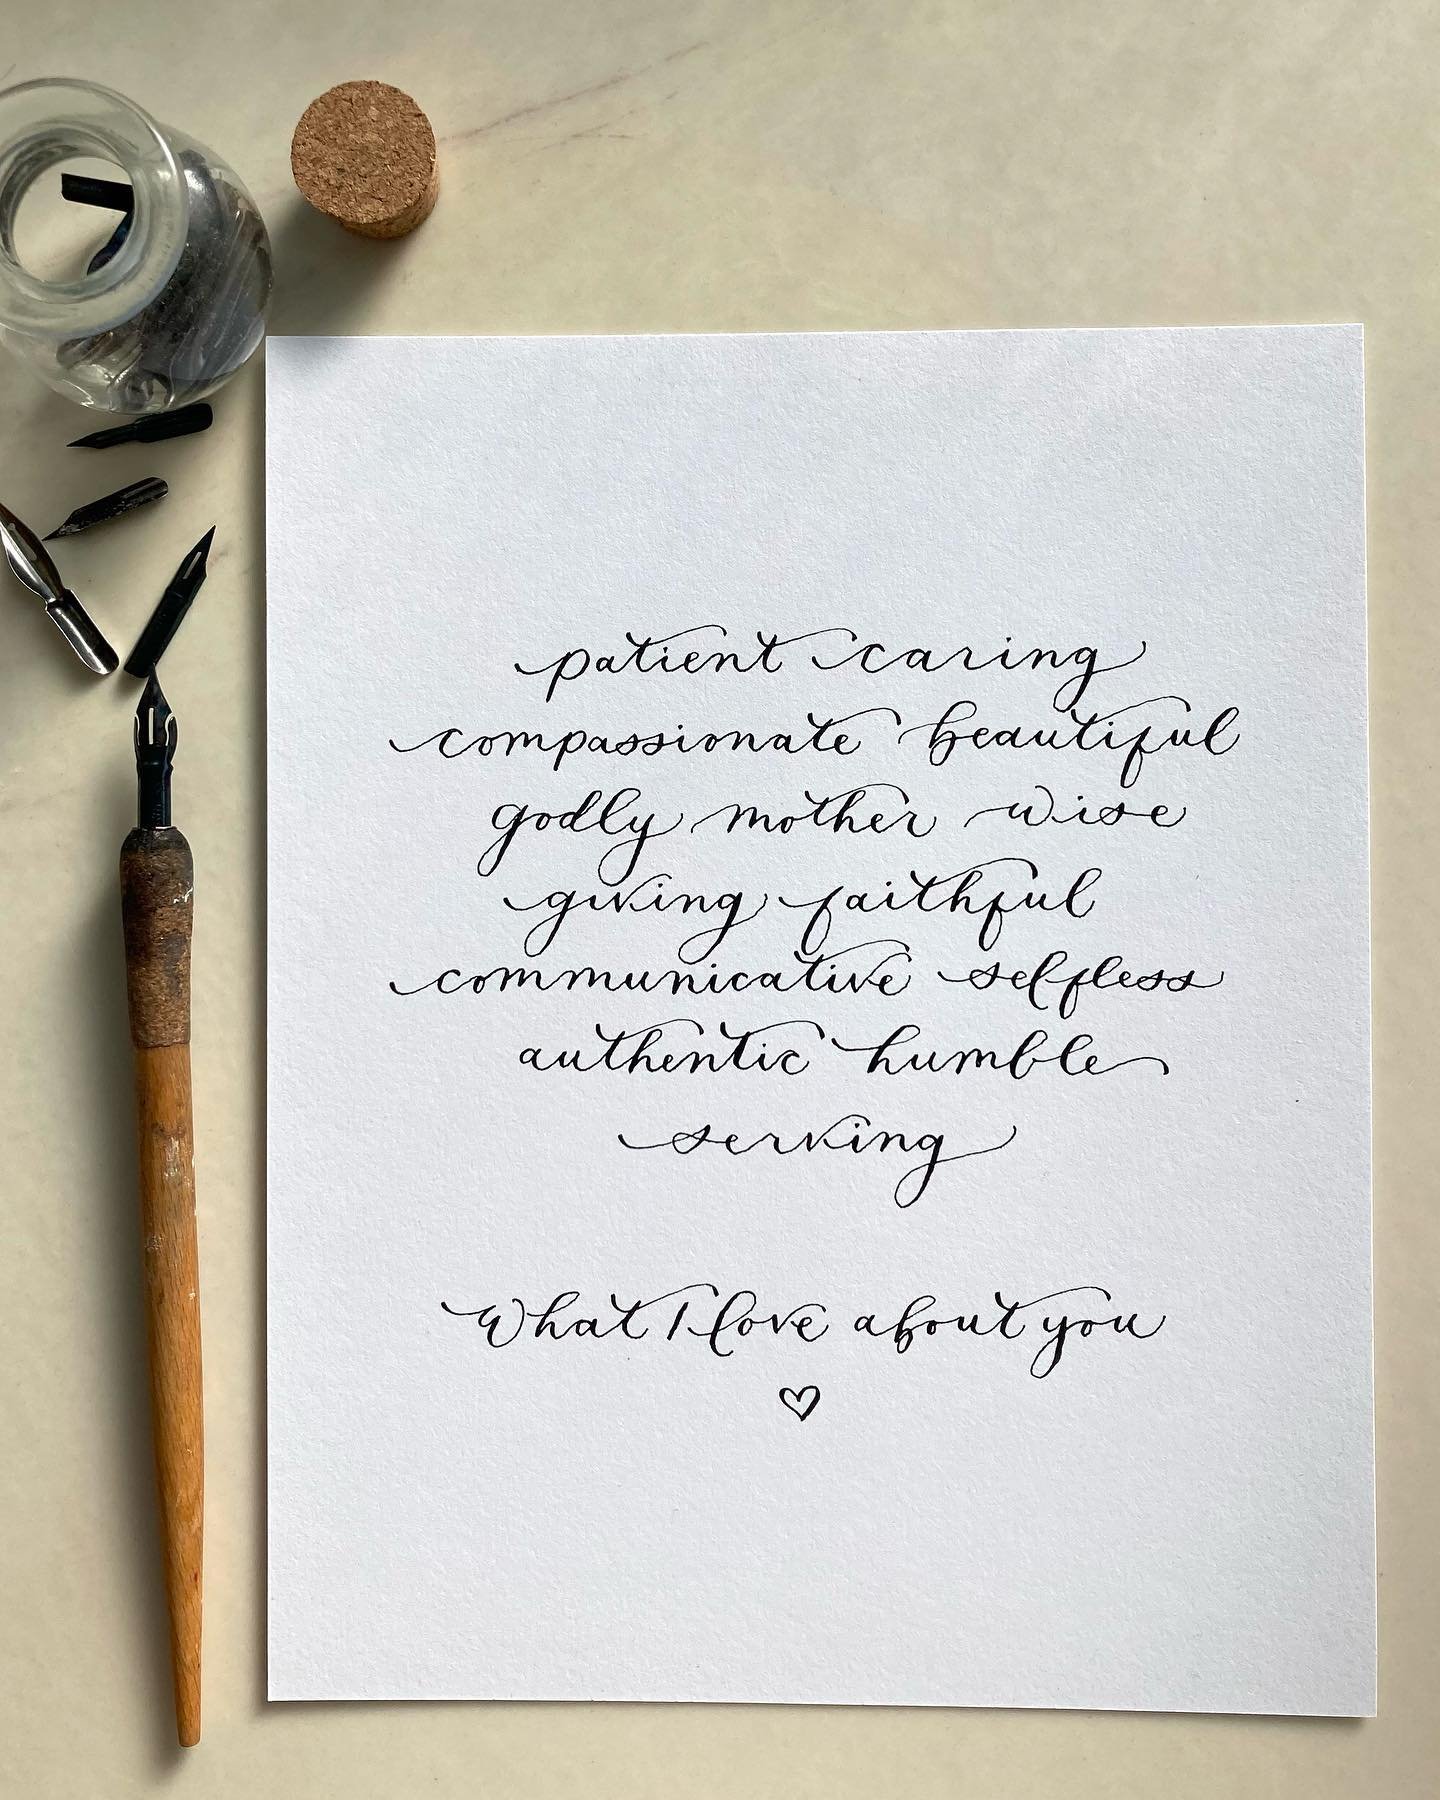 patient caring
compassionate beautiful
godly mother wise
giving faithful
communicative selfless
authentic humble
serving
What I love about you